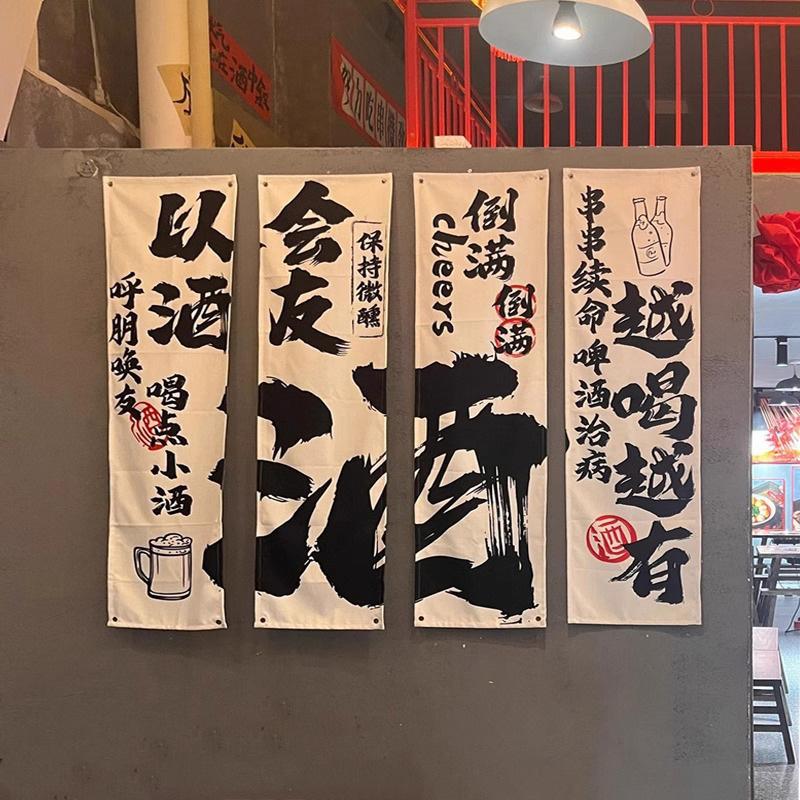 以酒
呼朋唤友
喝点小酒
会友
保持微醺
酒
倒满
cheers
倒满
串串续命啤酒治病
越喝越有
酒
努力吃串
在酒中